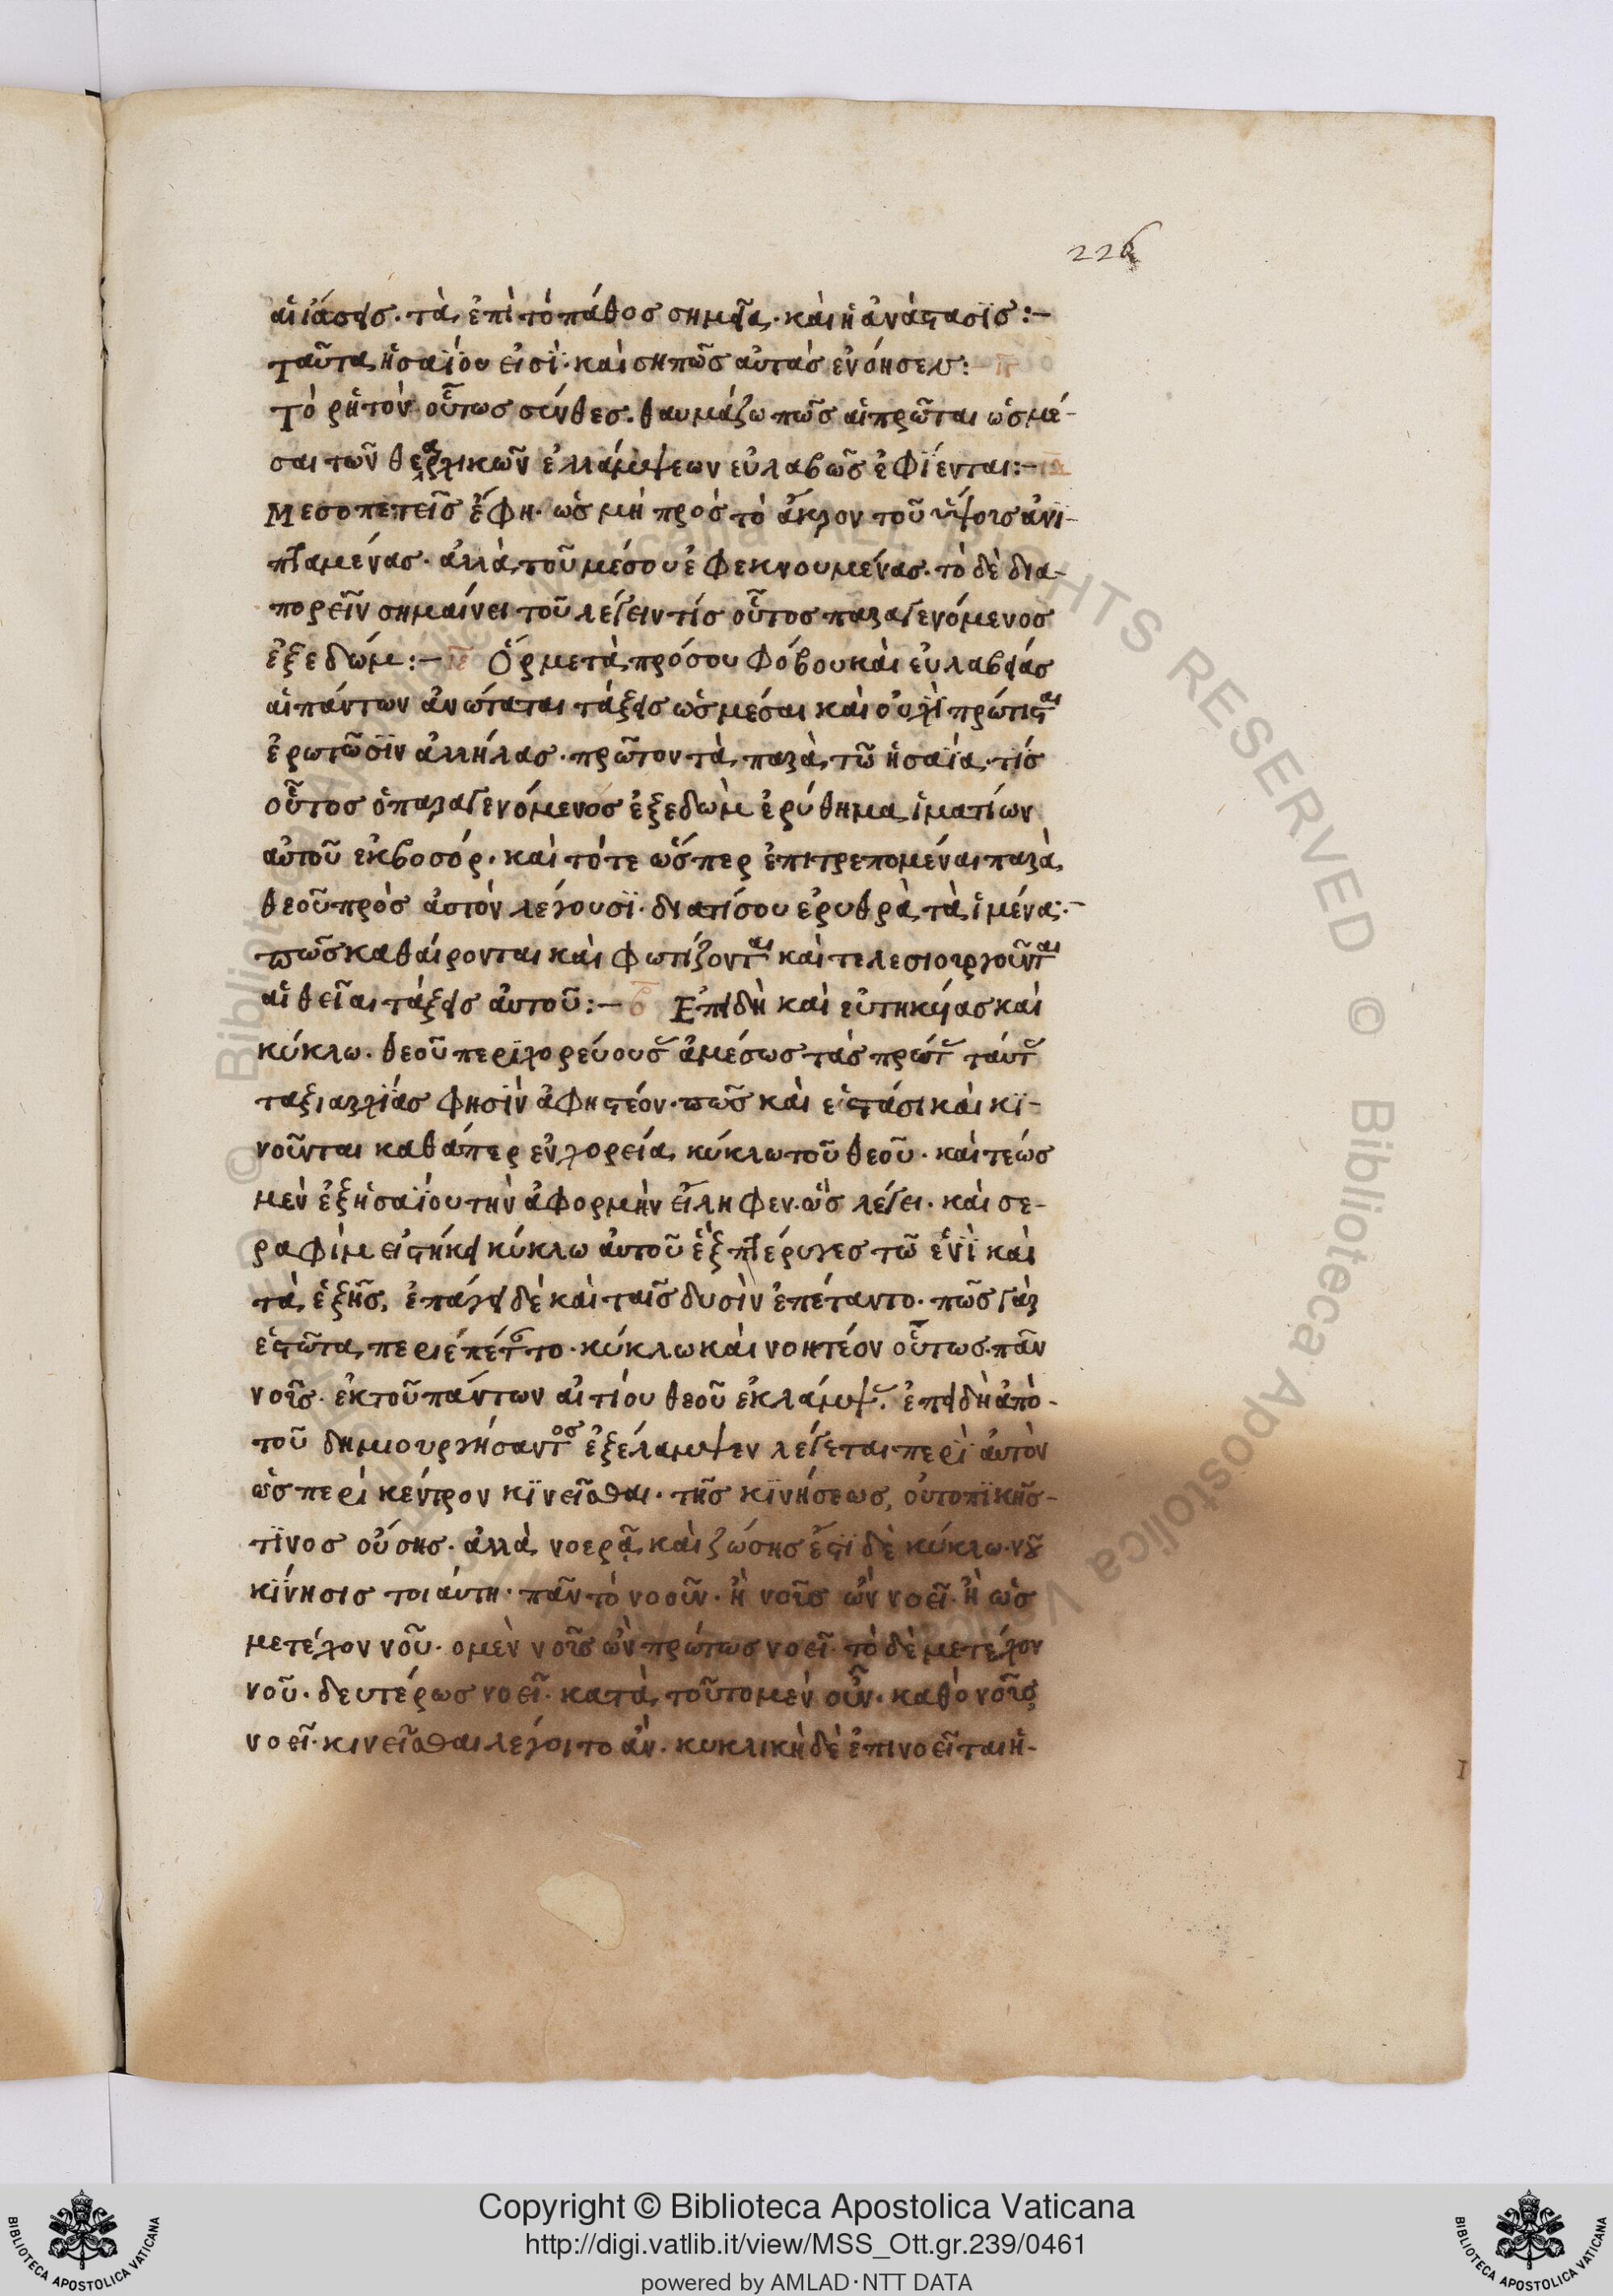 226
αἱ ἰάσεις· τὰ ἐπὶ τὸ πάθος σημεῖα· καὶ ἡ ἀνάστασϊς :-
ταῦτα ἡσαΐου εἰσὶ· καὶ σὴ πῶς αὐτὰσ ἐνόησεν :
Τὸ ρητὸν οὕτως σύνθες. θαυμάζω πῶς αἱ πρῶται ὡσ μέ-
σαι τῶν θεαρχικῶν ἐλλάμψεων εὐλαβῶς ἐφΐενται :-
Μεσοπετεῖς ἔφη· ὡς μὴ πρὸς τὸ ἄκρον τοῦ ὕψους ἀνϊ-
πταμένας· ἀλλὰ τοῦ μέσου ἐφεκνουμένας· τὸ δὲ δια-
πορεῖν σημαίνει τοῦ λέγειν τίς οὗτος παραγενόμενος
ἐξ εδώμ :- Ὅρ μετὰ πρόσου φόβου καὶ εὐλαβείας
αἱ πάντων ἀνώταται τάξεις ὡσ μέσαι καὶ οὐχὶ πρώτισται
ἐρωτῶσϊν ἀλλήλας· πρῶτον τὰ παρὰ τῶ ἡσαΐα· τίς
οὗτος ὁ παραγενόμενος ἐξ εδὼμ ἐρύθημα ἱματίων
αὐτοῦ ἐκ βοσόρ· καὶ τότε ὥσπερ ἐπιτρεπομέναι παρὰ
θεοῦ πρὸς ἀστὸν λέγουσϊ· διατί σου ἐρυθρὰ τὰ ἱμένα :-
πῶς καθαίρονται καὶ φωτίζονται καὶ τελεσιουργοῦνται
αἱ θεῖαι τάξεις αὐτοῦ :- Ἐπειδὴ καὶ εὐτηκείας καὶ
κύκλω· θεοῦ περϊχορεύουσ ἀμέσως τὰς πρώτ ταύτ
ταξιαρχΐας φησϊν ἀφηστέον· πῶς καὶ ἑστάσι καὶ κϊ-
νοῦνται καθάπερ ἐν χορεία κύκλω τοῦ θεοῦ· καὶ τέως
μὲν ἐξ ἡσαΐου τὴν ἀφορμὴν εἴληφεν· ὡς λέγει· καὶ σε-
ραφὶμ εἰστήκει κύκλω αὐτοῦ ἓξ πτέρυγες τῶ ἑνὶ καὶ
τὰ ἑξῆς, ἐπάγει δὲ καὶ ταῖς δυσὶν ἐπέταντο· πῶς γὰρ
ἑστῶτα περιεπέτ το· κύκλω καὶ νοητέον οὕτως· πᾶν
νοῦς· ἐκ τοῦ πάντων αἰτίου θεοῦ ἐκλάμψ. ἐπειδὴ ἀπὸ-
τοῦ δημιουργήσαντος ἐξέλαμψεν λέγεται περὶ αὐτὸν
ὡς περὶ κέντρον κϊνεῖσθαι· τῆς κϊνήσεως, οὐ τοπϊκῆς-
τϊνος οὔσης· ἀλλὰ νοερᾶ καὶ ζώσης ἔστϊ δὲ κύκλω νοῦ
κΐνησις τοιάυτη· πᾶν τὸ νοοῦν· ἢ νοῦς ὢν νοεῖ· ἢ ὡς
μετέχον νοῦ· ο μὲν νοῦς ὢν πρώτως νοεῖ· τὸ δὲ μετέχον
νοῦ· δευτέρως νοεῖ· κατὰ τοῦτο μὲν οὖν· καθὸ νοῦς
νοεῖ· κινεῖσθαι λέγοιτο ἄν· κυκλικὴ δὲ ἐπινοεῖται ἡ-
Copyright © Biblioteca Apostolica Vaticana
http://digi.vatlib.it/view/MSS_Ott.gr.239/0461
powered by AMLAD·NTT DATA
BIBLIOTECA APOSTOLICA VATICANA
BIBLIOTECA APOSTOLICA VATICANA